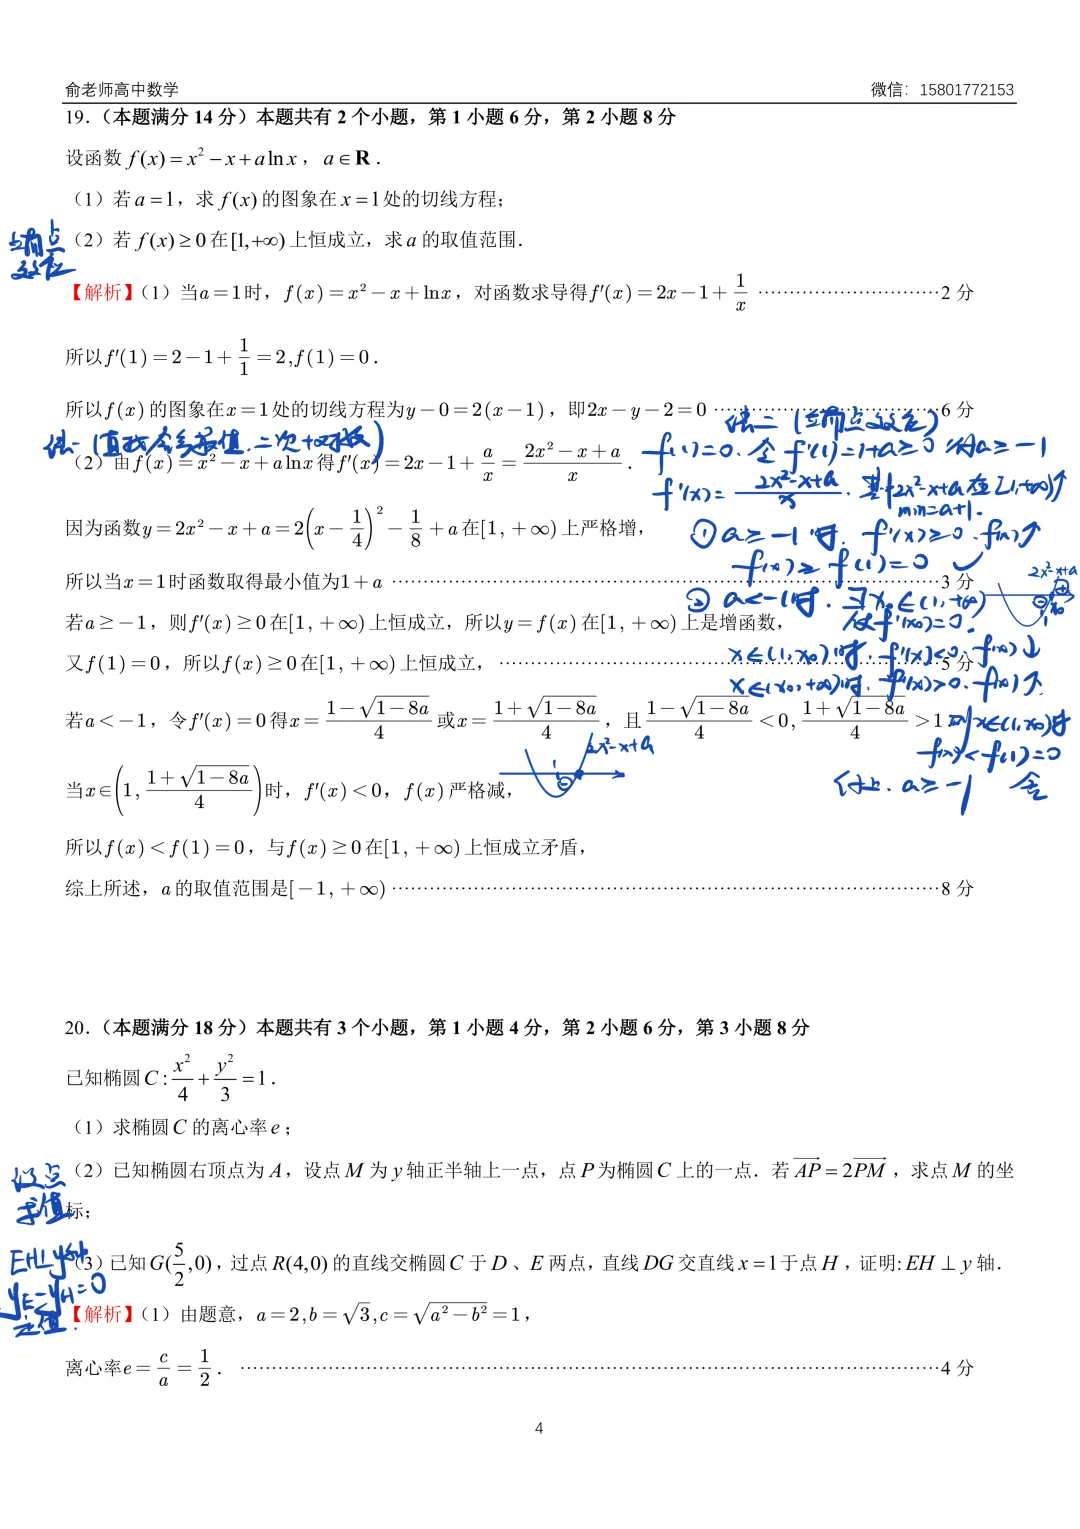 俞老师高中数学 微信：15801772153
19．（本题满分 14 分）本题共有 2 个小题，第 1 小题 6 分，第 2 小题 8 分
设函数 f(x)=x²−x+alnx，a∈R．
（1）若 a=1，求 f(x) 的图象在 x=1 处的切线方程；
（2）若 f(x)≥0 在[1,+∞) 上恒成立，求 a 的取值范围．
端点
效应
【解析】（1）当a=1时，f(x)=x²−x+lnx，对函数求导得f′(x)=2x−1+1/x ……………………2 分
所以f′(1)=2−1+1/1=2,f(1)=0．
所以f(x)的图象在x=1处的切线方程为y−0=2(x−1)，即2x−y−2=0 ……………………6 分
法一(直接含参最值.二次+ 函数)
（2）由f(x)=x²−x+alnx得f′(x)=2x−1+a/x=(2x²−x+a)/x．
因为函数y=2x²−x+a=2(x−1/4)²−1/8+a在[1,+∞)上严格增，
所以当x=1时函数取得最小值为1+a ……………………3 分
若a≥−1，则f′(x)≥0在[1,+∞)上恒成立，所以y=f(x)在[1,+∞)上是增函数，
又f(1)=0，所以f(x)≥0在[1,+∞)上恒成立，……………………5 分
若a<−1，令f′(x)=0得x=(1−√(1−8a))/4或x=(1+√(1−8a))/4，且(1−√(1−8a))/4<0，(1+√(1−8a))/4>1
当x∈(1,(1+√(1−8a))/4)时，f′(x)<0，f(x)严格减，
2x²-x+a
1
⊖
所以f(x)<f(1)=0，与f(x)≥0在[1,+∞)上恒成立矛盾，
综上所述，a的取值范围是[−1,+∞) ……………………8 分
法二(端点效应)
f(1)=0. 令 f′(1)=1+a≥0 得a≥−1
f′(x)=(2x²-x+a)/x. 其中2x²-x+a在[1,+∞)↑
min=a+1.
①a≥−1时. f′(x)≥0. f(x)↑
f(x)≥f(1)=0 ✓
②a<−1时. ∃x₀∈(1,+∞)
使f′(x₀)=0.
2x²-x+a
⊖ ⊕
1 x₀
x∈(1,x₀)时. f′(x)<0. f(x)↓
x∈(x₀,+∞)时. f′(x)>0. f(x)↑
则x∈(1,x₀)时
f(x)<f(1)=0
综上. a≥−1 舍
20．（本题满分 18 分）本题共有 3 个小题，第 1 小题 4 分，第 2 小题 6 分，第 3 小题 8 分
已知椭圆C:x²/4+y²/3=1．
（1）求椭圆C 的离心率e；
设点
求值
（2）已知椭圆右顶点为 A，设点 M 为 y 轴正半轴上一点，点 P 为椭圆 C 上的一点．若 AP=2PM，求点 M 的坐
标；
EH⊥y轴
yE−yH=0
定值
（3）已知G(5/2,0)，过点 R(4,0) 的直线交椭圆 C 于 D、E 两点，直线 DG 交直线 x=1于点 H，证明: EH⊥y 轴．
【解析】（1）由题意，a=2,b=√3,c=√(a²−b²)=1，
离心率e=c/a=1/2．……………………4 分
4